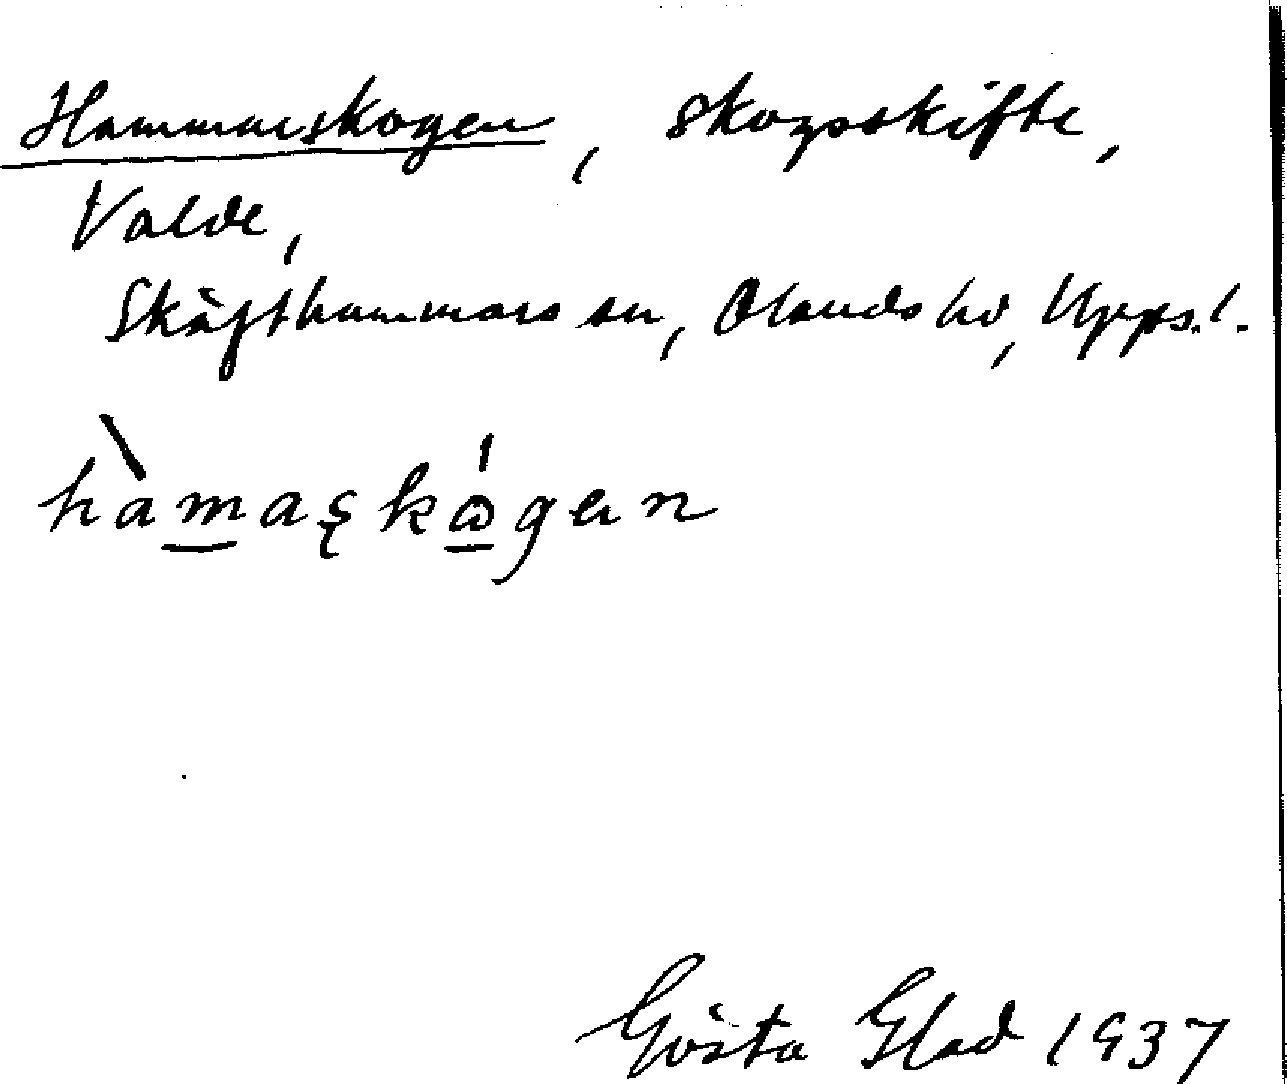 Hammarskogen, skogsskifte,
Valde,
Skäfthammars sn, Olands hd, Upps. l.
hàmaʂkɷ́gen
Gösta Glad 1937